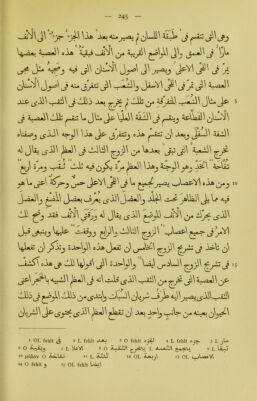 — 245 —
وهي التي تنقسم في طبقة اللسان ثم يصير منه بعد هذا الجزء جزء الى الأنف
مارًا في العمق والى المواضع القريبة من الأنف فبقية هذه العصبة بعضها
يمر في اللحى الأعلى ويصير الى اصول الأسنان التي فيه ومجيه مثل مجي
العصبة التي تمر في اللحى الأسفل والشعب التي تتفرق منه في اصول الأسنان
على مثال الشعب المتفرقة من تلك ثم يخرج بعد ذلك في الثقب الذي عند
الأسنان القطاعة وينقسم في الشفة العليا على مثال ما تنقسم تلك العصبة في
الشفة السفلى وبعد ان تنقسم هذه وتتفرق على هذا الوجه الذي وصفناه
تخرج الشعبة التي تبقى بعدها من الزوج الثالث في العظم الذي يقال له
تفاحة الخد وهو الوجنة وهذا العظم مرة يكون فيه ثلث ثقب ومرة اربع
ومن هذه الاعصاب يصير لجميع ما في اللحى الأعلى حس وحركة اعني ما هو
فيه مما يلي الظاهر تحت الجلد والعضل الذي يعرف بعضل المضغ والعضل
الذي يحرك من الأنف الموضع الذي يقال له ورقتي الأنف فقد وضح لك
الامر في جميع اعصاب الزوج الثالث والرابع ووقفت عليها وينبغي قبل
ان تأخذ في تشريح الزوج الخامس ان تفعل هذه الواحدة وتذكر ان تفعلها
في تشريح الزوج السادس ايضا والواحدة التي اقولها لك هي هذه اكشف
عن العصبة التي تخرج من الثقب الذي قلت انه في العظم الشبيه بالحجر اعني
الثقب الذي يصير اليه طرف شريان السبات وابتدئ من ذلك الموضع في ذلك
الحيوان بعينه من جانب واحد بعد ان تقطع العظم الذي يحتوي على الشريان